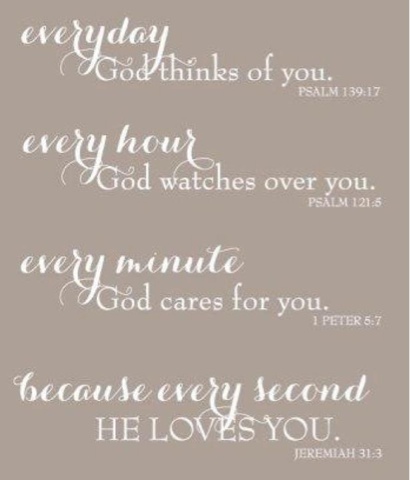 everyday
God thinks of you.
PSALM 139:17
every hour
God watches over you.
PSALM 121:5
every minute
God cares for you.
1 PETER 5:7
because every second
HE LOVES YOU.
JEREMIAH 31:3